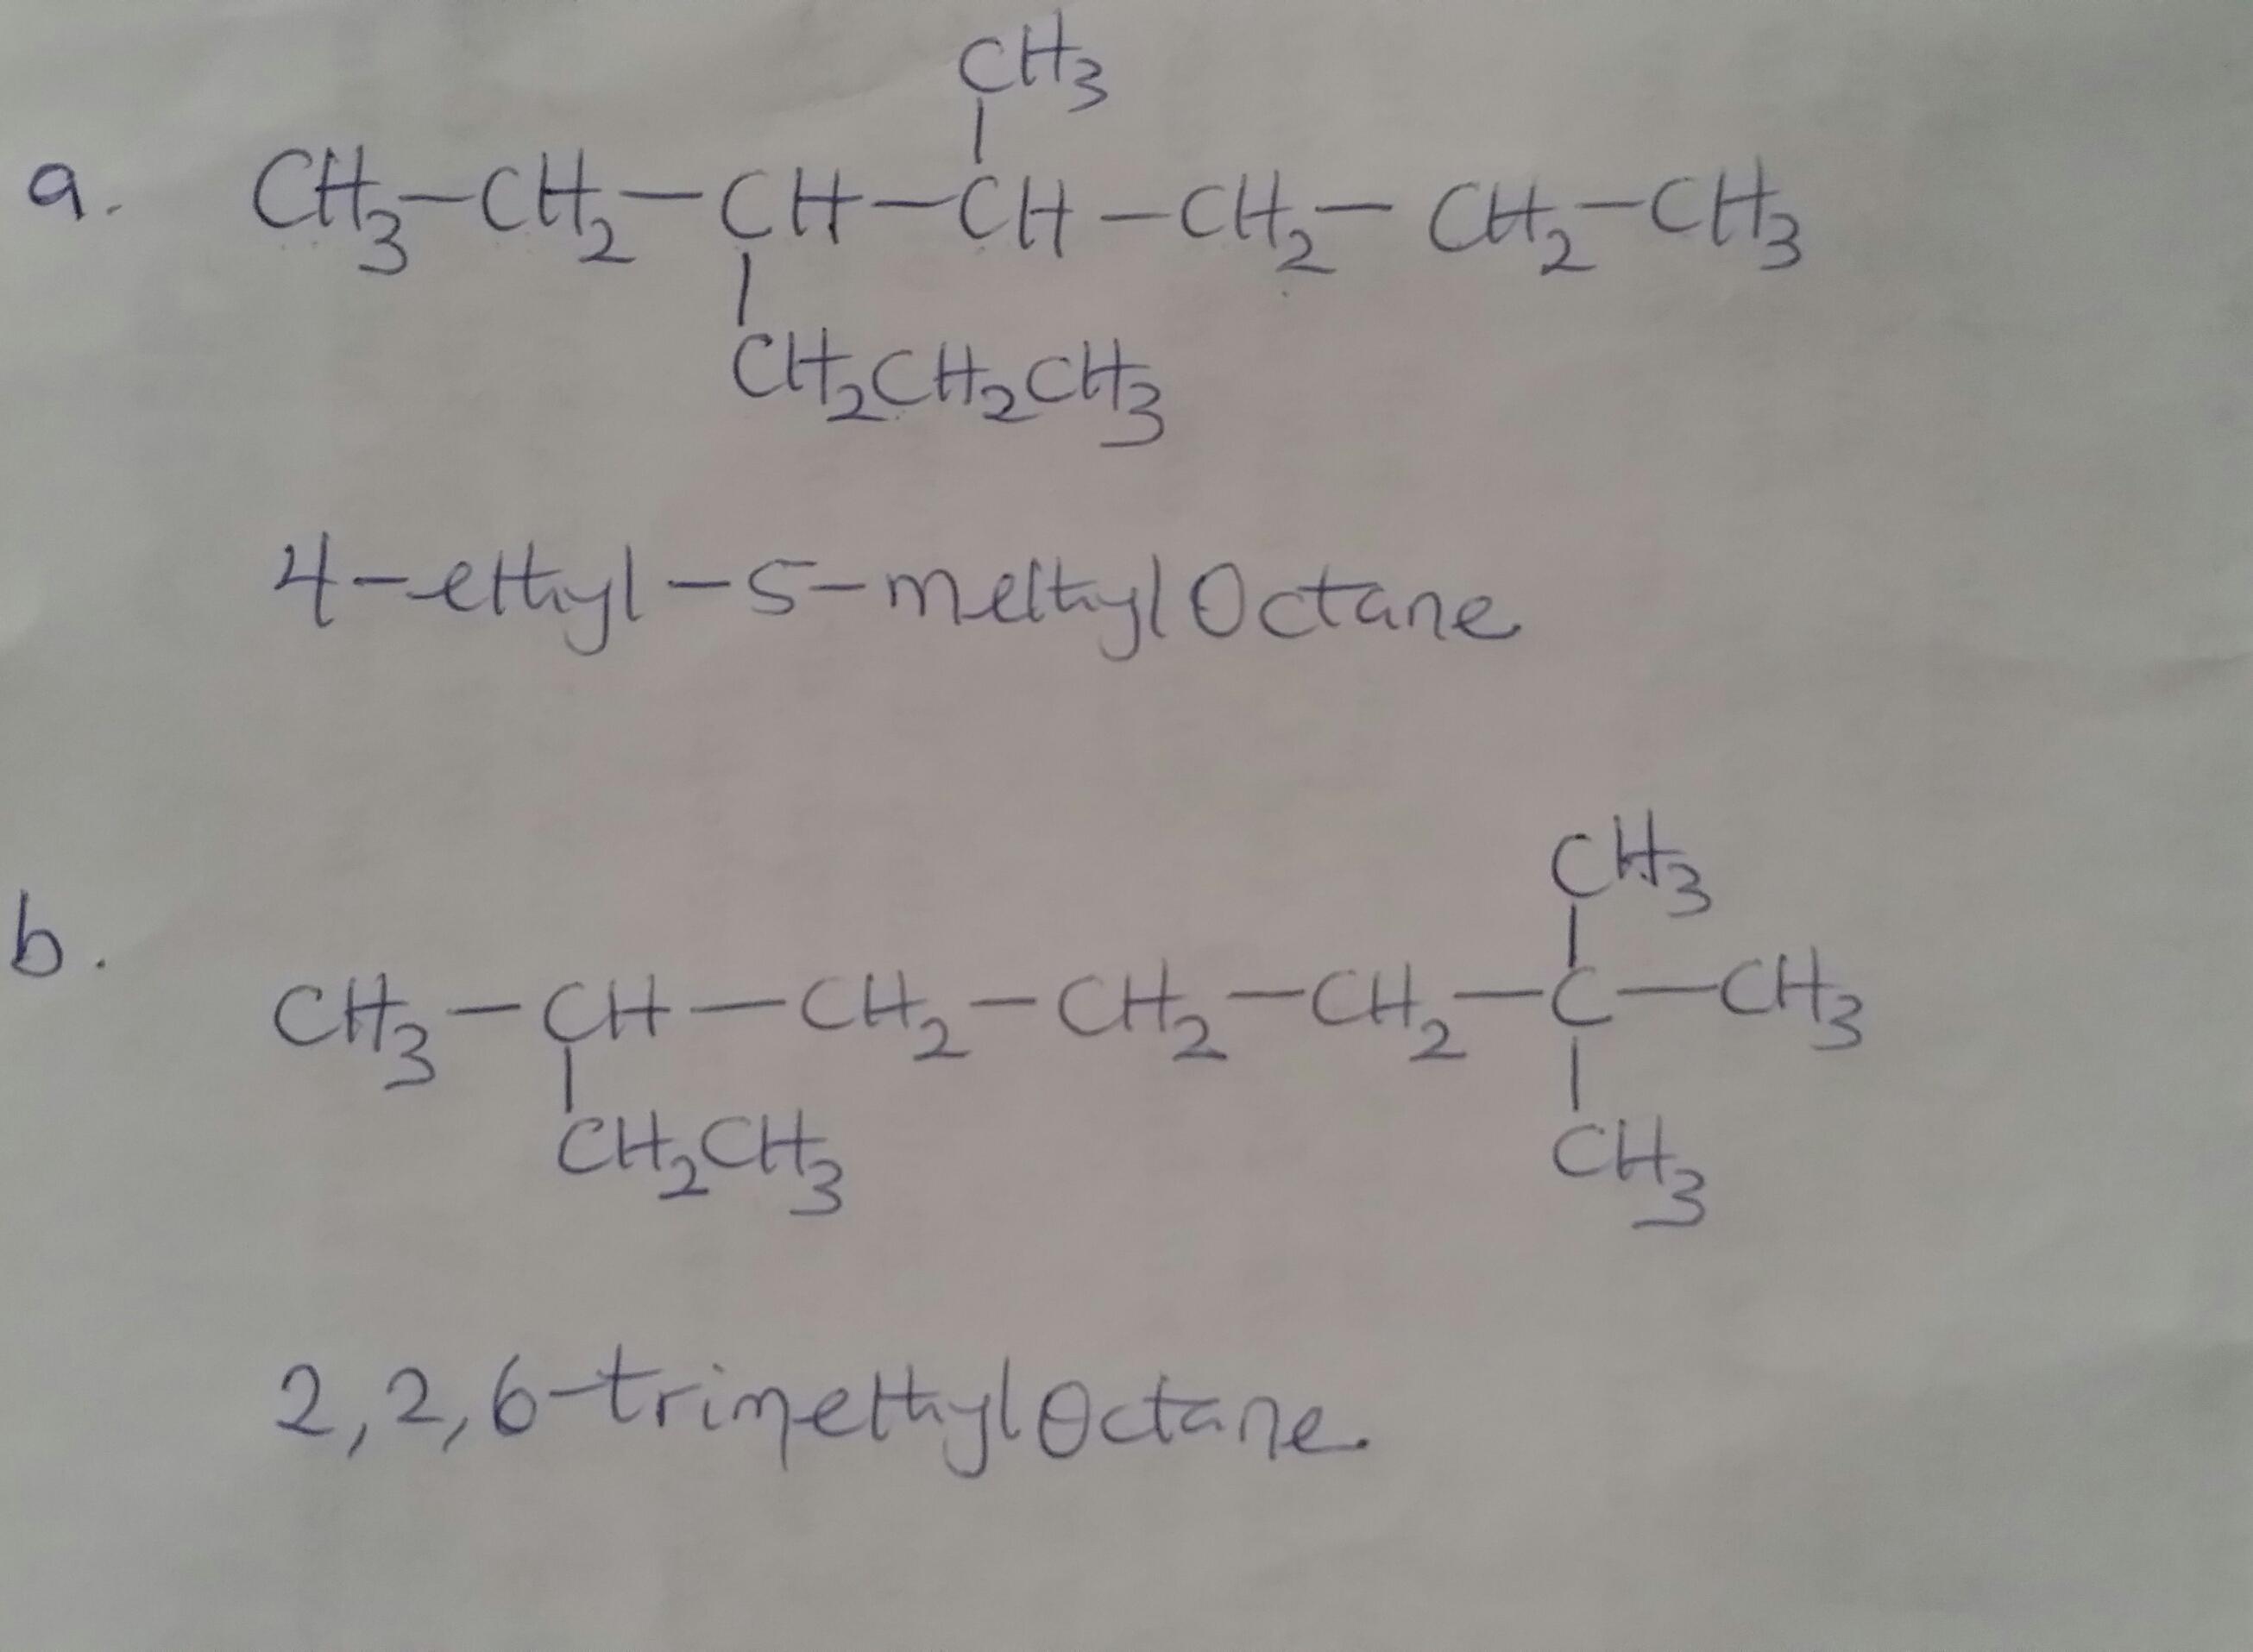 CH3
a. CH3-CH2-CH-CH-CH2-CH2-CH3
CH2CH2CH3
4-ethyl-5-methyl Octane
CH3
b.
CH3-CH-CH2-CH2-CH2-C-CH3
CH2CH3 CH3
2,2,6-trimethyl Octane.